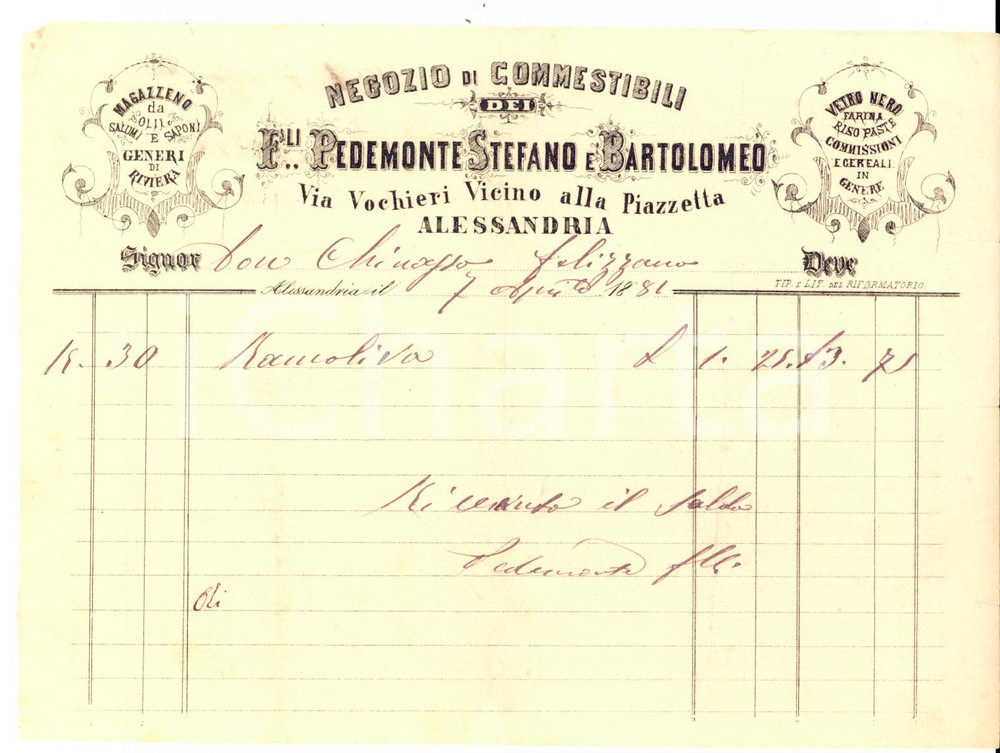 NEGOZIO DI COMMESTIBILI
DEI
F.LLI PEDEMONTE STEFANO E BARTOLOMEO
Via Vochieri Vicino alla Piazzetta
ALESSANDRIA
MAGAZZENO
da
OLII
SALUMI E SAPONI
GENERI
DI
RIVIERA
VETRO NERO
FARINA
RISO PASTE
COMMISSIONI
E CEREALI
IN
GENERE
Signor Don felizzano Deve
Alessandria il 7 1881
TIP. E LIT. DEL RIFORMATORIO.
K. 30 £ 1.
Ricevuto il Saldo
Pedemonte flli
iCharta